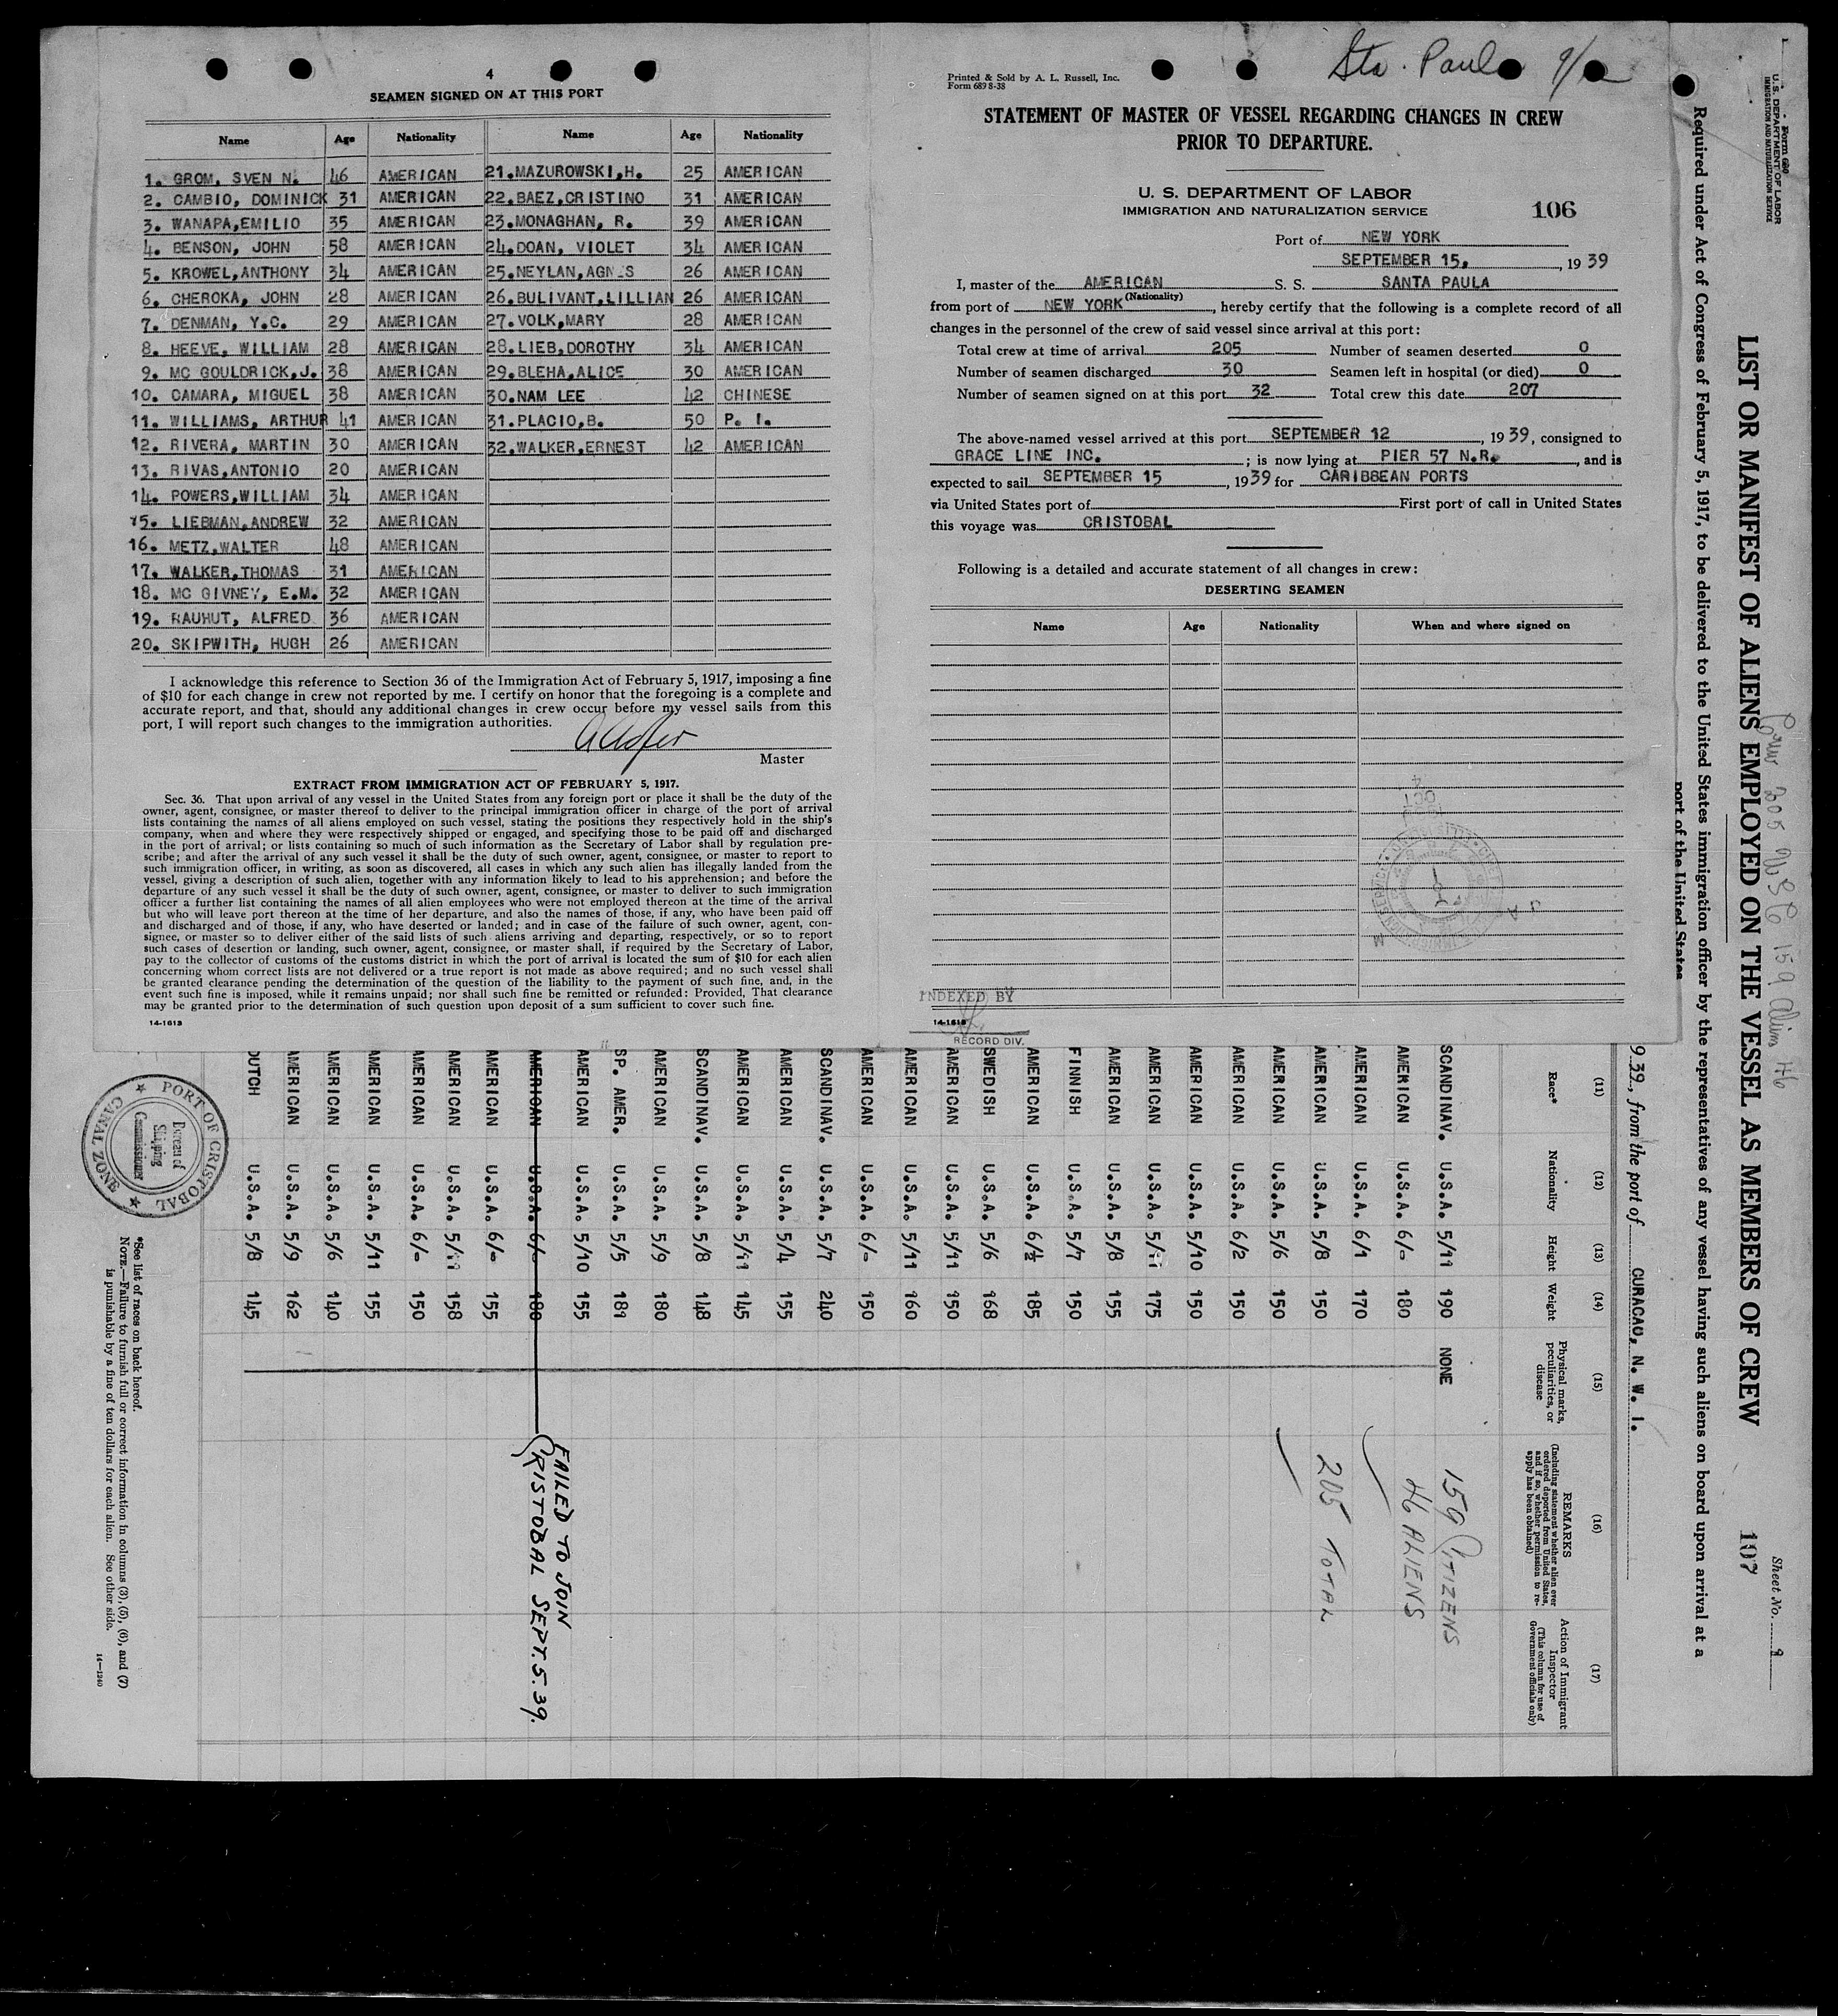 4
SEAMEN SIGNED ON AT THIS PORT
Name Age Nationality Name Age Nationality
1. GROM, SVEN N. 46 AMERICAN 21.MAZUROWSKI,H. 25 AMERICAN
2. CAMBIO, DOMINICK 31 AMERICAN 22.BAEZ,CRISTINO 31 AMERICAN
3. WANAPA,EMILIO 35 AMERICAN 23.MONAGHAN, R. 39 AMERICAN
4. BENSON, JOHN 58 AMERICAN 24.DOAN, VIOLET 34 AMERICAN
5. KROWEL,ANTHONY 34 AMERICAN 25.NEYLAN,AGNES 26 AMERICAN
6. CHEROKA, JOHN 28 AMERICAN 26.BULIVANT,LILLIAN 26 AMERICAN
7. DENMAN, Y.C. 29 AMERICAN 27.VOLK,MARY 28 AMERICAN
8. HEEVE, WILLIAM 28 AMERICAN 28.LIEB,DOROTHY 34 AMERICAN
9. MC GOULDRICK,J. 38 AMERICAN 29.BLEHA,ALICE 30 AMERICAN
10. CAMARA, MIGUEL 38 AMERICAN 30.NAM LEE 42 CHINESE
11. WILLIAMS, ARTHUR 41 AMERICAN 31.PLACIO,B. 50 P. I.
12. RIVERA, MARTIN 30 AMERICAN 32.WALKER,ERNEST 42 AMERICAN
13. RIVAS,ANTONIO 20 AMERICAN
14. POWERS,WILLIAM 34 AMERICAN
15. LIEBMAN,ANDREW 32 AMERICAN
16. METZ,WALTER 48 AMERICAN
17. WALKER,THOMAS 31 AMERICAN
18. MC GIVNEY, E.M. 32 AMERICAN
19. RAUHUT, ALFRED 36 AMERICAN
20. SKIPWITH, HUGH 26 AMERICAN
I acknowledge this reference to Section 36 of the Immigration Act of February 5, 1917, imposing a fine
of $10 for each change in crew not reported by me. I certify on honor that the foregoing is a complete and
accurate report, and that, should any additional changes in crew occur before my vessel sails from this
port, I will report such changes to the immigration authorities.
Master
EXTRACT FROM IMMIGRATION ACT OF FEBRUARY 5, 1917.
Sec. 36. That upon arrival of any vessel in the United States from any foreign port or place it shall be the duty of the
owner, agent, consignee, or master thereof to deliver to the principal immigration officer in charge of the port of arrival
lists containing the names of all aliens employed on such vessel, stating the positions they respectively hold in the ship's
company, when and where they were respectively shipped or engaged, and specifying those to be paid off and discharged
in the port of arrival; or lists containing so much of such information as the Secretary of Labor shall by regulation pre-
scribe; and after the arrival of any such vessel it shall be the duty of such owner, agent, consignee, or master to report to
such immigration officer, in writing, as soon as discovered, all cases in which any such alien has illegally landed from the
vessel, giving a description of such alien, together with any information likely to lead to his apprehension; and before the
departure of any such vessel it shall be the duty of such owner, agent, consignee, or master to deliver to such immigration
officer a further list containing the names of all alien employees who were not employed thereon at the time of the arrival
but who will leave port thereon at the time of her departure, and also the names of those, if any, who have been paid off
and discharged and of those, if any, who have deserted or landed; and in case of the failure of such owner, agent, con-
signee, or master so to deliver either of the said lists of such aliens arriving and departing, respectively, or so to report
such cases of desertion or landing, such owner, agent, consignee, or master shall, if required by the Secretary of Labor,
pay to the collector of customs of the customs district in which the port of arrival is located the sum of $10 for each alien
concerning whom correct lists are not delivered or a true report is not made as above required; and no such vessel shall
be granted clearance pending the determination of the question of the liability to the payment of such fine, and, in the
event such fine is imposed, while it remains unpaid; nor shall such fine be remitted or refunded: Provided, That clearance
may be granted prior to the determination of such question upon deposit of a sum sufficient to cover such fine.
14-1613
Sta. Paula 9/12
Printed & Sold by A. L. Russell, Inc.
Form 689 8-38
STATEMENT OF MASTER OF VESSEL REGARDING CHANGES IN CREW
PRIOR TO DEPARTURE.
U. S. DEPARTMENT OF LABOR
IMMIGRATION AND NATURALIZATION SERVICE
106
Port of NEW YORK
SEPTEMBER 15, , 19 39
I, master of the AMERICAN S. S. SANTA PAULA
(Nationality)
from port of NEW YORK , hereby certify that the following is a complete record of all
changes in the personnel of the crew of said vessel since arrival at this port:
Total crew at time of arrival 205 Number of seamen deserted 0
Number of seamen discharged 30 Seamen left in hospital (or died) 0
Number of seamen signed on at this port 32 Total crew this date 207
The above-named vessel arrived at this port SEPTEMBER 12 , 19 39, consigned to
GRACE LINE INC. ; is now lying at PIER 57 N.R. , and is
expected to sail SEPTEMBER 15 , 19 39 for CARIBBEAN PORTS
via United States port of First port of call in United States
this voyage was CRISTOBAL
Following is a detailed and accurate statement of all changes in crew:
DESERTING SEAMEN
Name Age Nationality When and where signed on
INDEXED BY
14-1613
RECORD DIV.
Form 680
U. S. DEPARTMENT OF LABOR
IMMIGRATION AND NATURALIZATION SERVICE
Sheet No. 9
Crew 205 USC 159 Alien 46
LIST OR MANIFEST OF ALIENS EMPLOYED ON THE VESSEL AS MEMBERS OF CREW
107
Required under Act of Congress of February 5, 1917, to be delivered to the United States immigration officer by the representatives of any vessel having such aliens on board upon arrival at a
port of the United States
9 39, from the port of CURACAO, N. W. I.
(11) (12) (13) (14) (15) (16) (17)
Race* Nationality Height Weight Physical marks, peculiarities, or disease REMARKS (Including statement whether alien ever ordered deported from United States, and if so, whether permission to re-apply has been obtained) Action of Immigrant Inspector (This column for use of Government officials only)
SCANDINAV. U.S.A. 5/11 190 NONE
159 CITIZENS
AMERICAN U.S.A. 6/- 180
46 ALIENS
AMERICAN U.S.A. 6/1 170
AMERICAN U.S.A. 5/8 150
205 TOTAL
AMERICAN U.S.A. 5/6 150
AMERICAN U.S.A. 6/2 150
AMERICAN U.S.A. 5/10 150
AMERICAN U.S.A. 5/11 175
AMERICAN U.S.A. 5/8 155
FINNISH U.S.A. 5/7 150
AMERICAN U.S.A. 6/½ 185
SWEDISH U.S.A. 5/6 168
AMERICAN U.S.A. 5/11 150
AMERICAN U.S.A. 5/11 160
AMERICAN U.S.A. 6/- 150
SCANDINAV. U.S.A. 5/7 240
AMERICAN U.S.A. 5/4 155
AMERICAN U.S.A. 5/11 145
SCANDINAV. U.S.A. 5/8 148
AMERICAN U.S.A. 5/9 180
SP. AMER. U.S.A. 5/5 189
AMERICAN U.S.A. 5/10 155
AMERICAN U.S.A. 6/- 180
FAILED TO JOIN
CRISTOBAL SEPT. 5. 39.
AMERICAN U.S.A. 6/- 155
AMERICAN U.S.A. 5/11 158
AMERICAN U.S.A. 6/- 150
AMERICAN U.S.A. 5/11 155
AMERICAN U.S.A. 5/6 140
AMERICAN U.S.A. 5/9 162
DUTCH U.S.A. 5/8 145
*See list of races on back hereof.
NOTE.—Failure to furnish full or correct information in columns (3), (5), (6), and (7)
is punishable by a fine of ten dollars for each alien. See other side.
14—1240
PORT OF CRISTOBAL
CANAL ZONE
Bureau of
Shipping
Commissioner